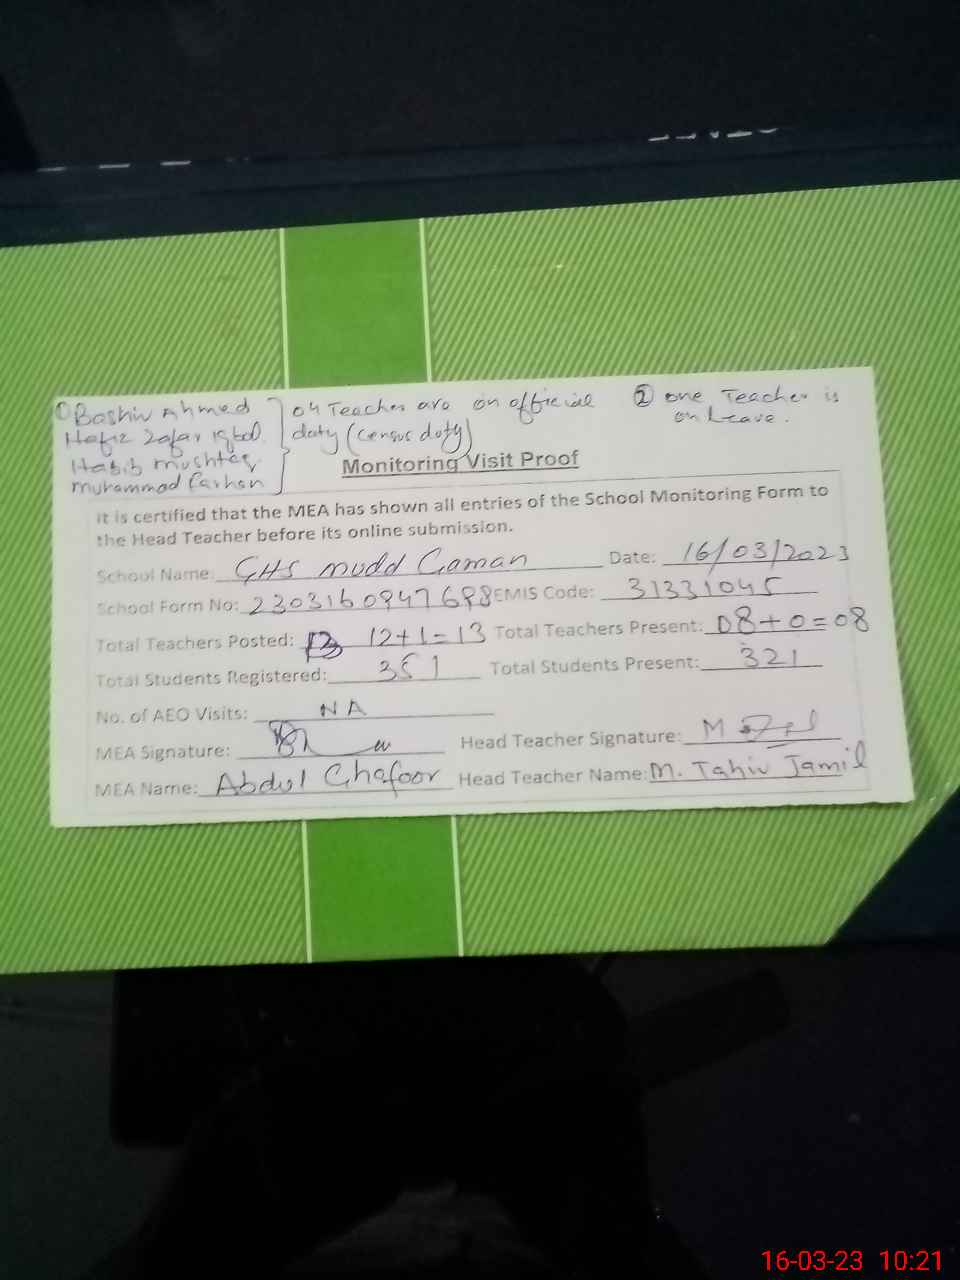 ① Bashir Ahmed
Hafiz Zafar Iqbal
Habib Mushtaq
Muhammad Farhan
04 Teacher are on official
duty (census duty)
② one Teacher is
on Leave.
Monitoring Visit Proof
It is certified that the MEA has shown all entries of the School Monitoring Form to
the Head Teacher before its online submission.
School Name: GHS Mudd Gaman Date: 16/03/2023
School Form No: 2303160947698 EMIS Code: 31331045
Total Teachers Posted: 12+1=13 Total Teachers Present: 08+0=08
Total Students Registered: 351 Total Students Present: 321
No. of AEO Visits: NA
MEA Signature: Head Teacher Signature:
MEA Name: Abdul Ghafoor Head Teacher Name: M. Tahir Jamil
16-03-23 10:21